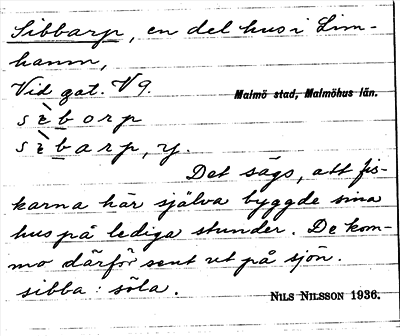 Sibbarp, en del hus i Lim-
hamn,
Vid gat. V 9.
Malmö stad, Malmöhus län.
s ì b o r p
s ì b a r p, y.
Det sägs, att fis-
karna här själva byggde sina
hus på lediga stunder. De kom-
mo därför sent ut på sjön.
sibba : söla.
NILS NILSSON 1936.